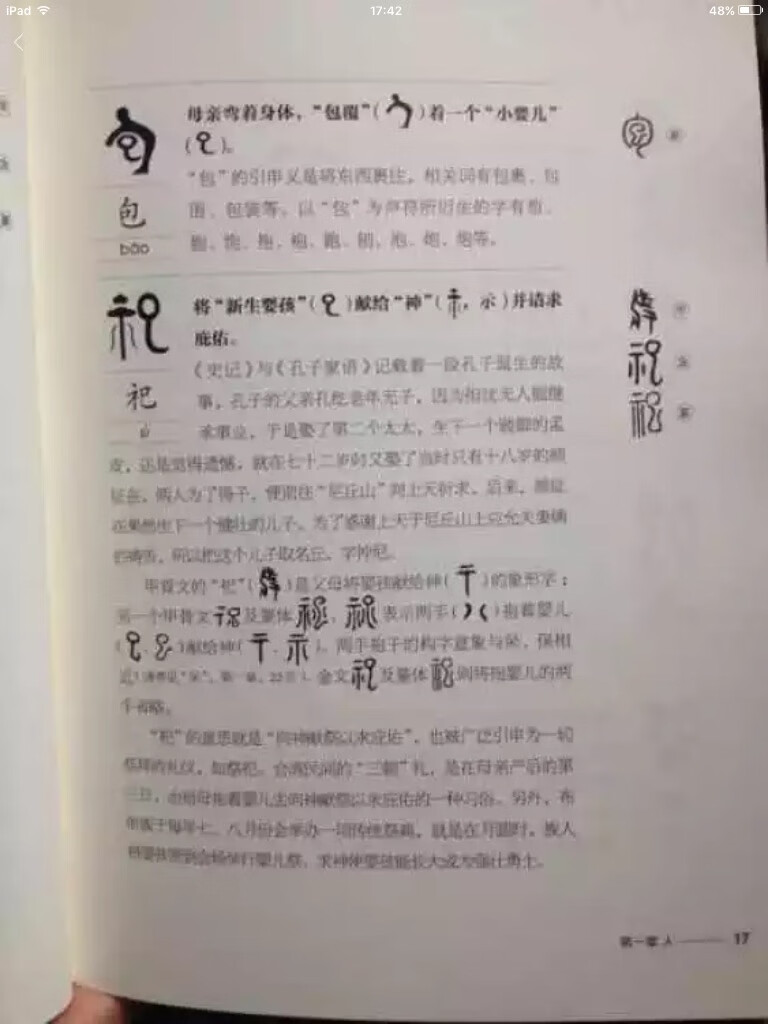 iPad
17:42
48%
母亲弯着身体，“包覆”（）着一个“小婴儿”
（）。
包
bāo
“包”的引申义是将东西裹住，相关词有包裹、包
围、包装等。以“包”为声符所衍生的字有
胞、饱、抱、袍、跑、刨、泡、炮等。
将“新生婴孩”（）献给“神”（，示）并请求
庇佑。
祀
《史记》与《孔子家语》记载着一段孔子诞生的故
事，孔子的父亲孔纥老年无子，因为担忧无人能继
承事业，于是娶了第二个太太，生下一个跛脚的孟
皮，还是觉得遗憾，就在七十二岁时又娶了当时只有十八岁的颜
征在。俩人为了得子，便前往“尼丘山”向上天祈求。后来，颜征
在果然生下一个健壮的儿子。为了感谢上天于尼丘山上应允夫妻俩
的祷告，所以把这个儿子取名丘，字仲尼。
甲骨文的“祀”（）是父母将婴孩献给神（）的象形字；
另一个甲骨文及篆体、表示两手（）抱着婴儿
（、）献给神（、）。两手抱子的构字意象与，保相
近（请参见“保”，第一章，22页）。金文及篆体则将抱婴儿的两
手省略。
“祀”的意思就是“向神献祭以求庇佑”，也被广泛引申为一切
祭拜的礼仪，如祭祀。台湾民间的“三朝”礼，是在母亲产后的第
三日，由祖母抱着婴儿去向神献祭以求庇佑的一种习俗。另外，布
农族于每年七、八月份会举办一项传统祭典，就是在月圆时，族人
将婴孩带到会场举行婴儿祭，求神使婴孩能长大成为强壮勇士。
第一章 人 17